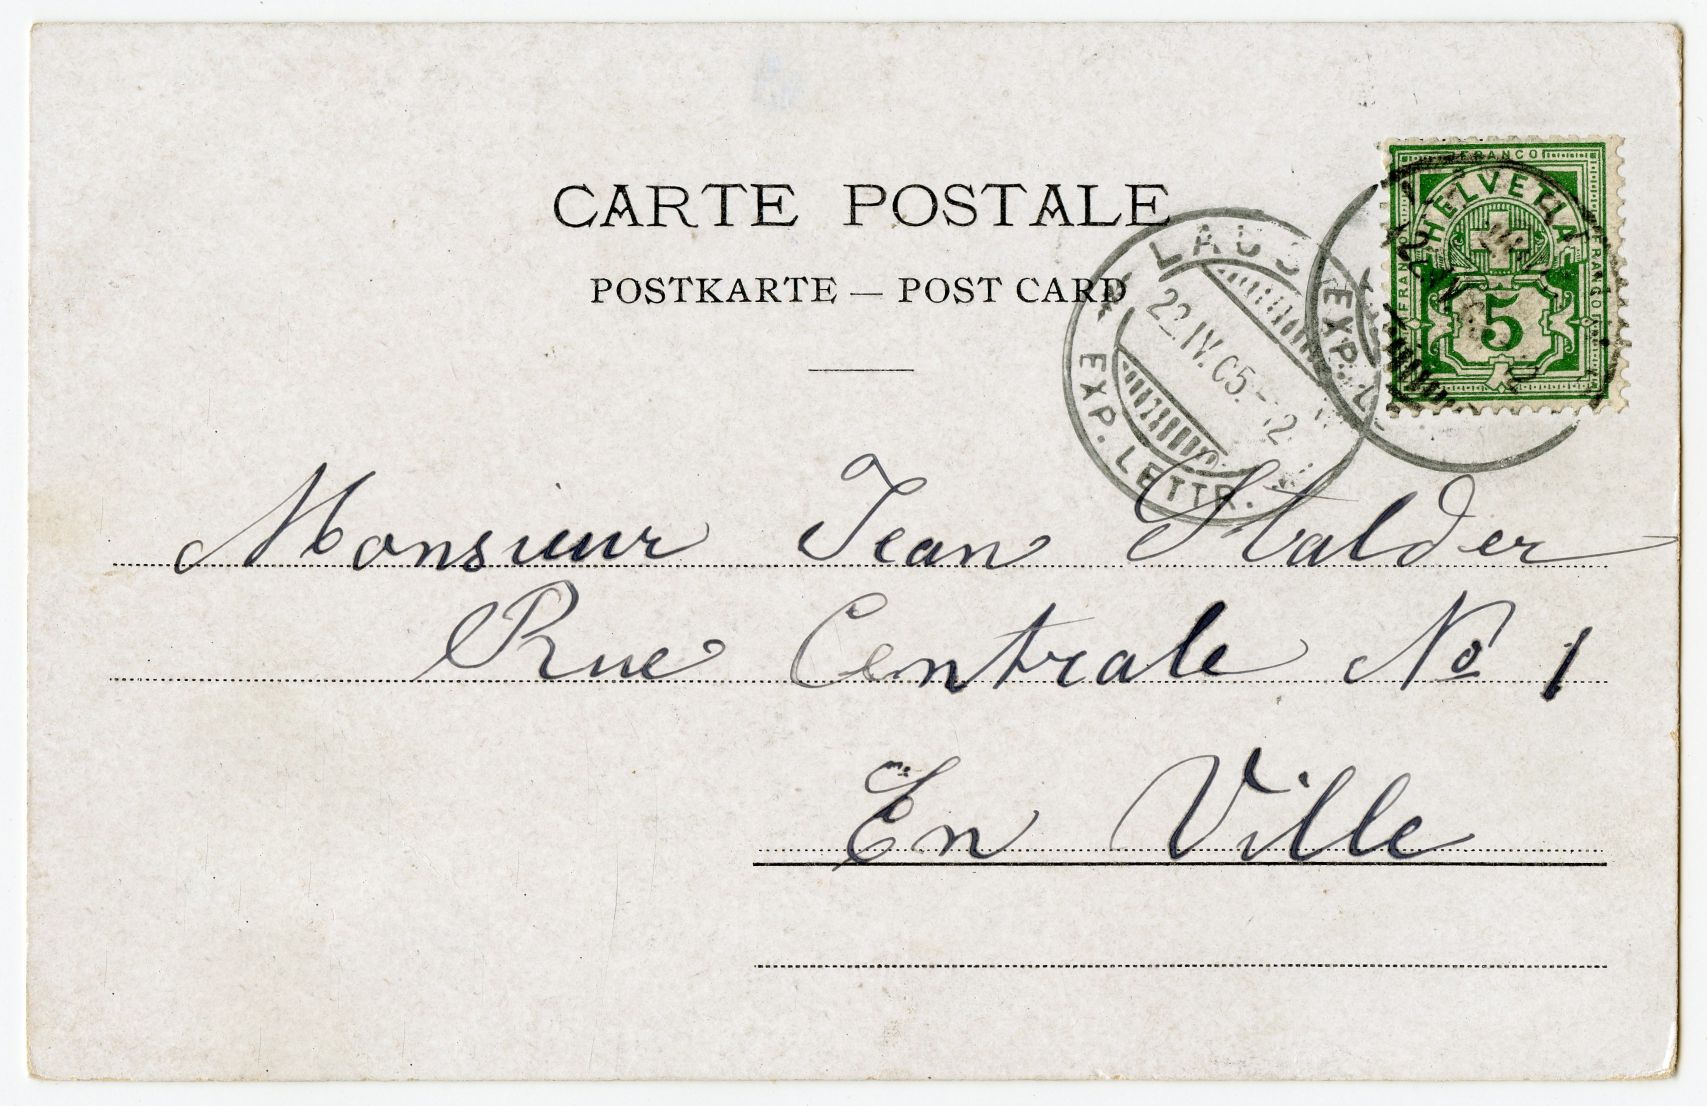 CARTE POSTALE
POSTKARTE — POST CARD
FRANCO
HELVETIA
FRANCO
FRANCO
5
LAUS
22.IV.05.-12
EXP. LETTR.
EXP. L
Monsieur Jean Stalder
Rue Centrale No 1
En Ville